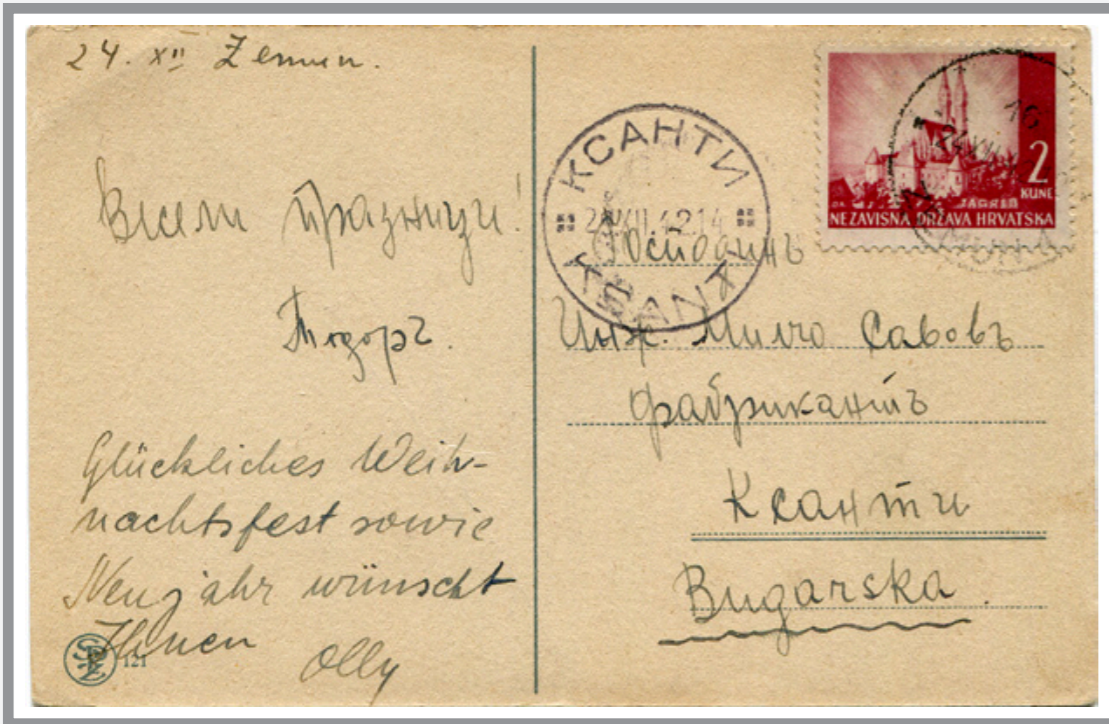 24. XII Zemun.
Весели празници!
Тодоръ.
Glückliches Weih-
nachtsfest sowie
Neujahr wünscht
Ihnen
Olly
121
КСАНТИ
XII.42 14
KSANTI
ZAGREB
2
KUNE
NEZAVISNA DRŽAVA HRVATSKA
Господинъ
Инж. Милчо Савовъ
фабрикантъ
Ксанти
Bugarska.